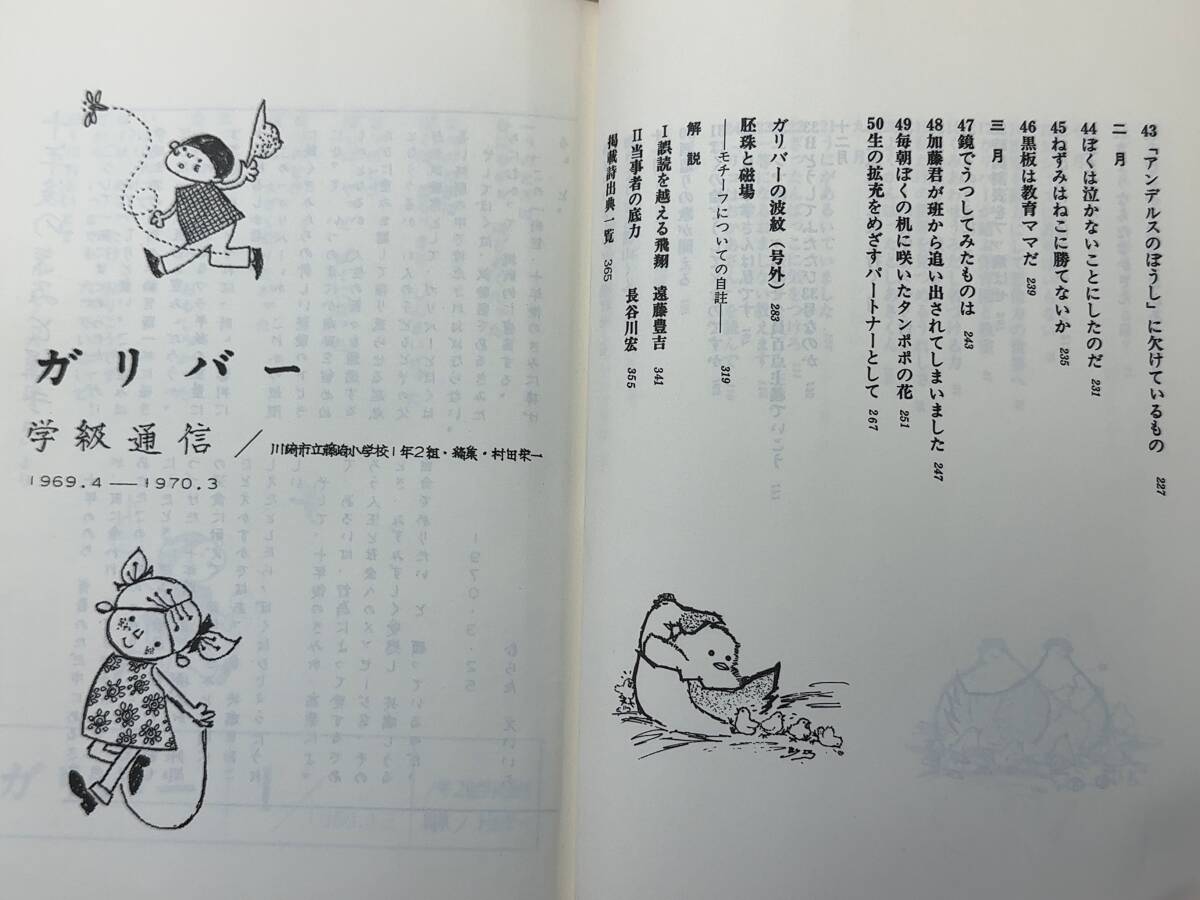 43「アンデルスのぼうし」に欠けているもの 227
二月
44ぼくは泣かないことにしたのだ 231
45ねずみはねこに勝てないか 235
46黒板は教育ママだ 239
三月
47鏡でうつしてみたものは 243
48加藤君が班から追い出されてしまいました 247
49毎朝ぼくの机に咲いたタンポポの花 251
50生の拡充をめざすパートナーとして 267
ガリバーの波紋（号外） 283
胚珠と磁場
――モチーフについての自註―― 319
解説
Ⅰ誤読を越える飛翔 遠藤豊吉 341
Ⅱ当事者の底力 長谷川宏 355
掲載詩出典一覧 365
ガリバー
学級通信／川崎市立藤崎小学校1年2組・編集・村田栄一
1969.4―1970.3